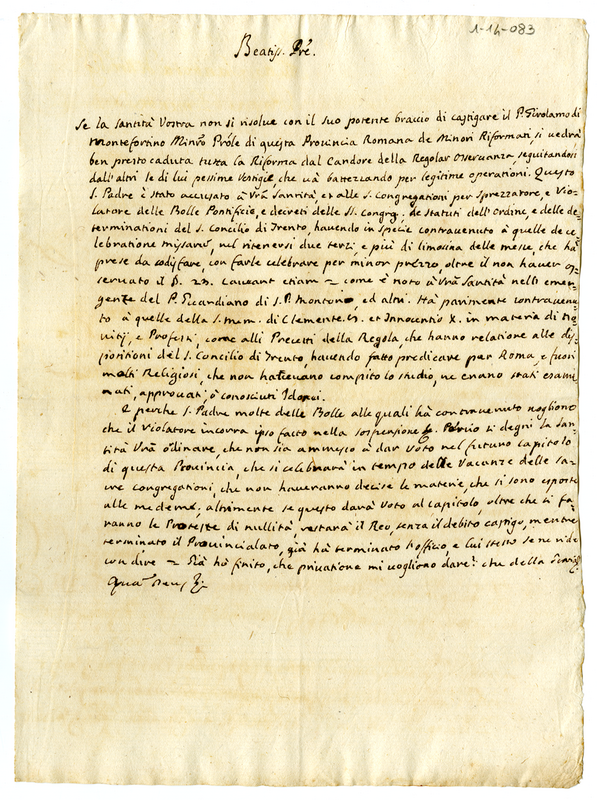 1-14-083
Beatiss. Pre.
Se la Santità Vostra non si risolve con il suo potente braccio di castigare il P. Girolamo di
Montefortino Minro Prole di questa Provincia Romana de Minori Riformati, si vedrà
ben presto caduta tutta la Riforma dal Candore della Regolar Osservanza, seguitandosi
dall'altri le di lui pessime vestigie, che và battezzando per legitime operationi. Questo
S. Padre è stato accusato à Vrà Santità, et alle S. Congregationi per Sprezzatore, e Vio-
latore delle Bolle Pontificie, e decreti delle SS. Congreg. de Statuti dell'Ordine, e delle de-
terminationi del S. Concilio di Trento, havendo in specie contravenuto à quelle de ce-
lebratione missaru, nel ritenersi due terzi, e più di limosina delle messe, che hà
prese da sodisfare, con farle celebrare per minor prezzo, oltre il non haver os-
servato il D. 23. Caveant etiam = come è noto à Vrà Santità nelli emer-
genze del P. Secandiano di S. P. Montorio, ed altri. Hà parimente contravenu-
to à quelle della S. mem. di Clemente et Innocentio X. in materia di No-
vitij, e Professi, come alli Precetti della Regola, che hanno relatione alle dis-
positioni del S. Concilio di Trento, havendo fatto predicare per Roma, e fuori
molti Religiosi, che non havevano compito lo studio, ne erano stati esami-
nati, approvati, ò conosciuti Idonei.
E perche S. Padre molte delle Bolle alle quali hà contravenuto vogliono
che il Violatore incorra ipso facto nella sospensione si degni la San-
tità Vrà ordinare, che non sia ammesso à dar Voto nel futuro capitolo
di questa Provincia, che si celebrarà in tempo delle Vacanze delle sa-
cre congregationi, che non haveranno decise le materie, che si sono esposte
alle medeme, altrimente se questo darà Voto al capitolo, oltre che si fa-
ranno le Proteste di nullità, restarà il Reo, senza il debito castigo, mentre
terminato il Provincialato, già hà terminato l'offitio, e lui stesso se ne ride
con dire = Già hò finito, che privatione mi vogliono dare? che della
Quam Deus